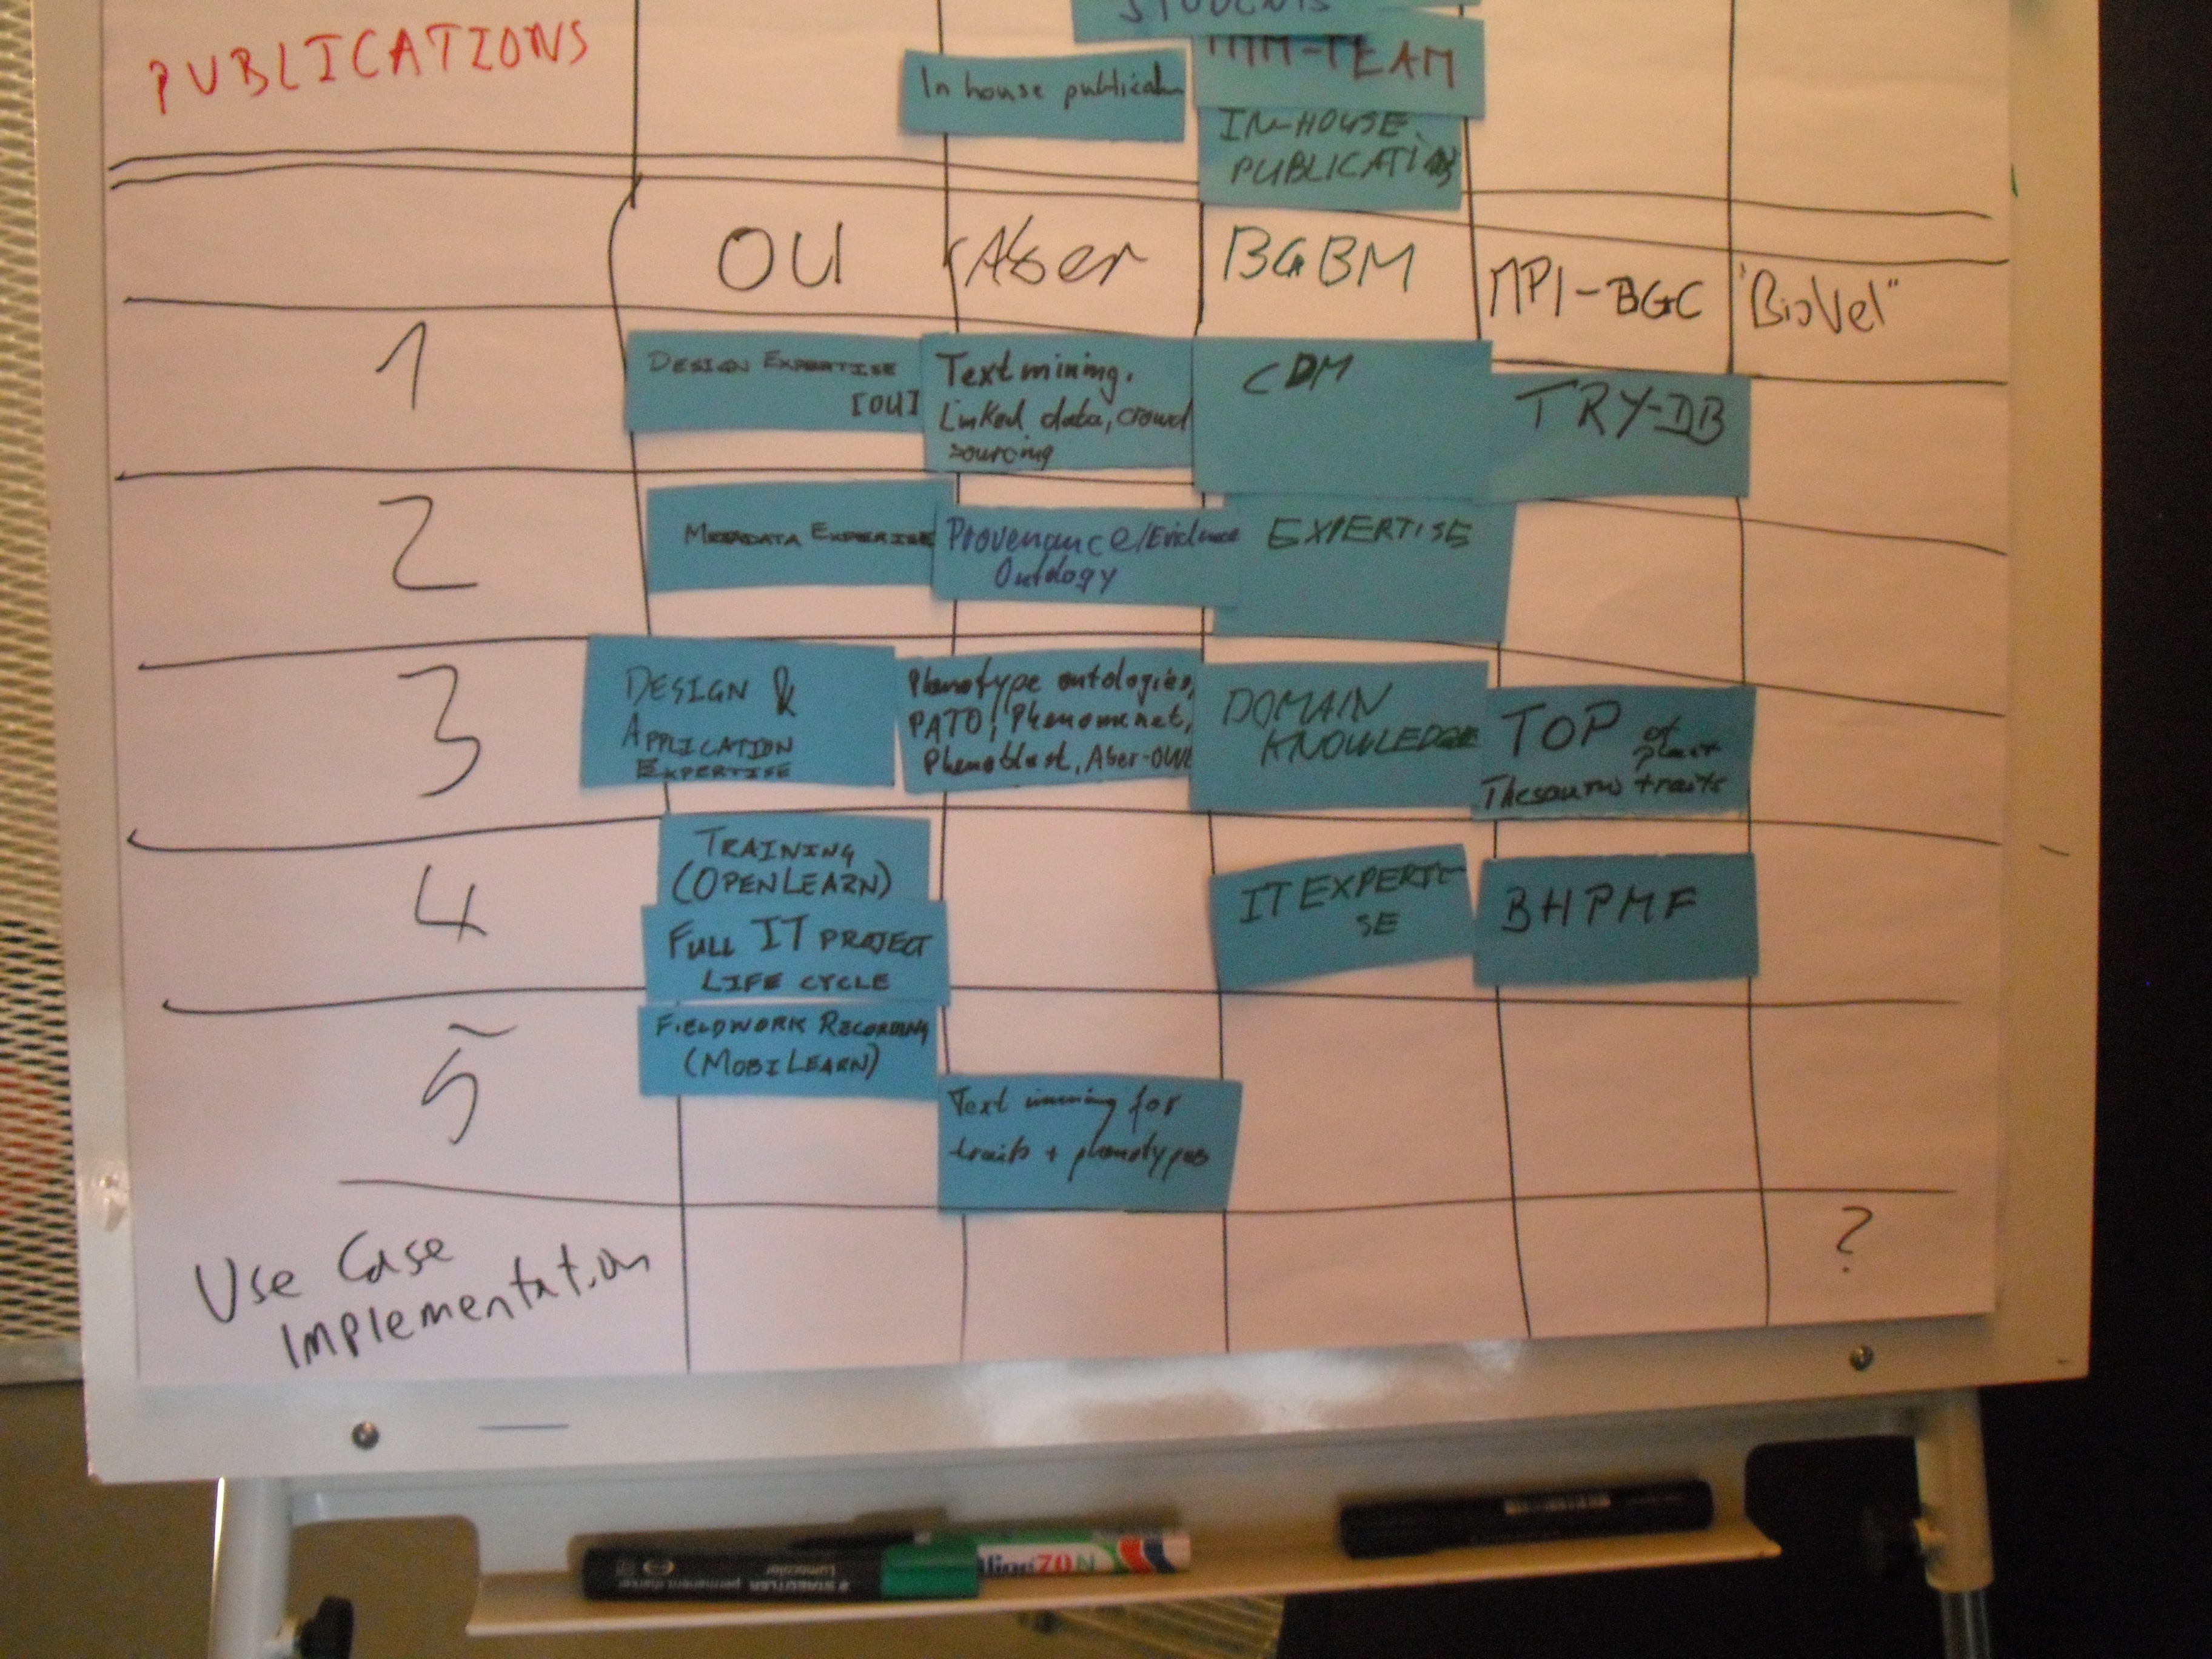 STUDENTS
PUBLICATIONS
In house publication
TEAM
IN-HOUSE
PUBLICATIONS
OU
Aber
BGBM
MPI-BGC
"BioVel"
1
DESIGN EXPERTISE
[OU]
Text mining,
Linked data, crowd
sourcing
CDM
TRY-DB
2
METADATA EXPERTISE
Provenance/Evidence
Ontology
EXPERTISE
3
DESIGN &
APPLICATION
EXPERTISE
Phenotype ontologies,
PATO, Phenomenet,
Phenoblast, Aber-OWL
DOMAIN
KNOWLEDGE
TOP
Thesaurus of plant traits
4
TRAINING
(OPENLEARN)
FULL IT PROJECT
LIFE CYCLE
IT EXPERTI-
SE
BHPMF
5
FIELDWORK RECORDING
(MOBILEARN)
Text mining for
traits + phenotypes
Use Case
Implementation
?
STAEDTLER
permanent marker
Lumocolor
70 N